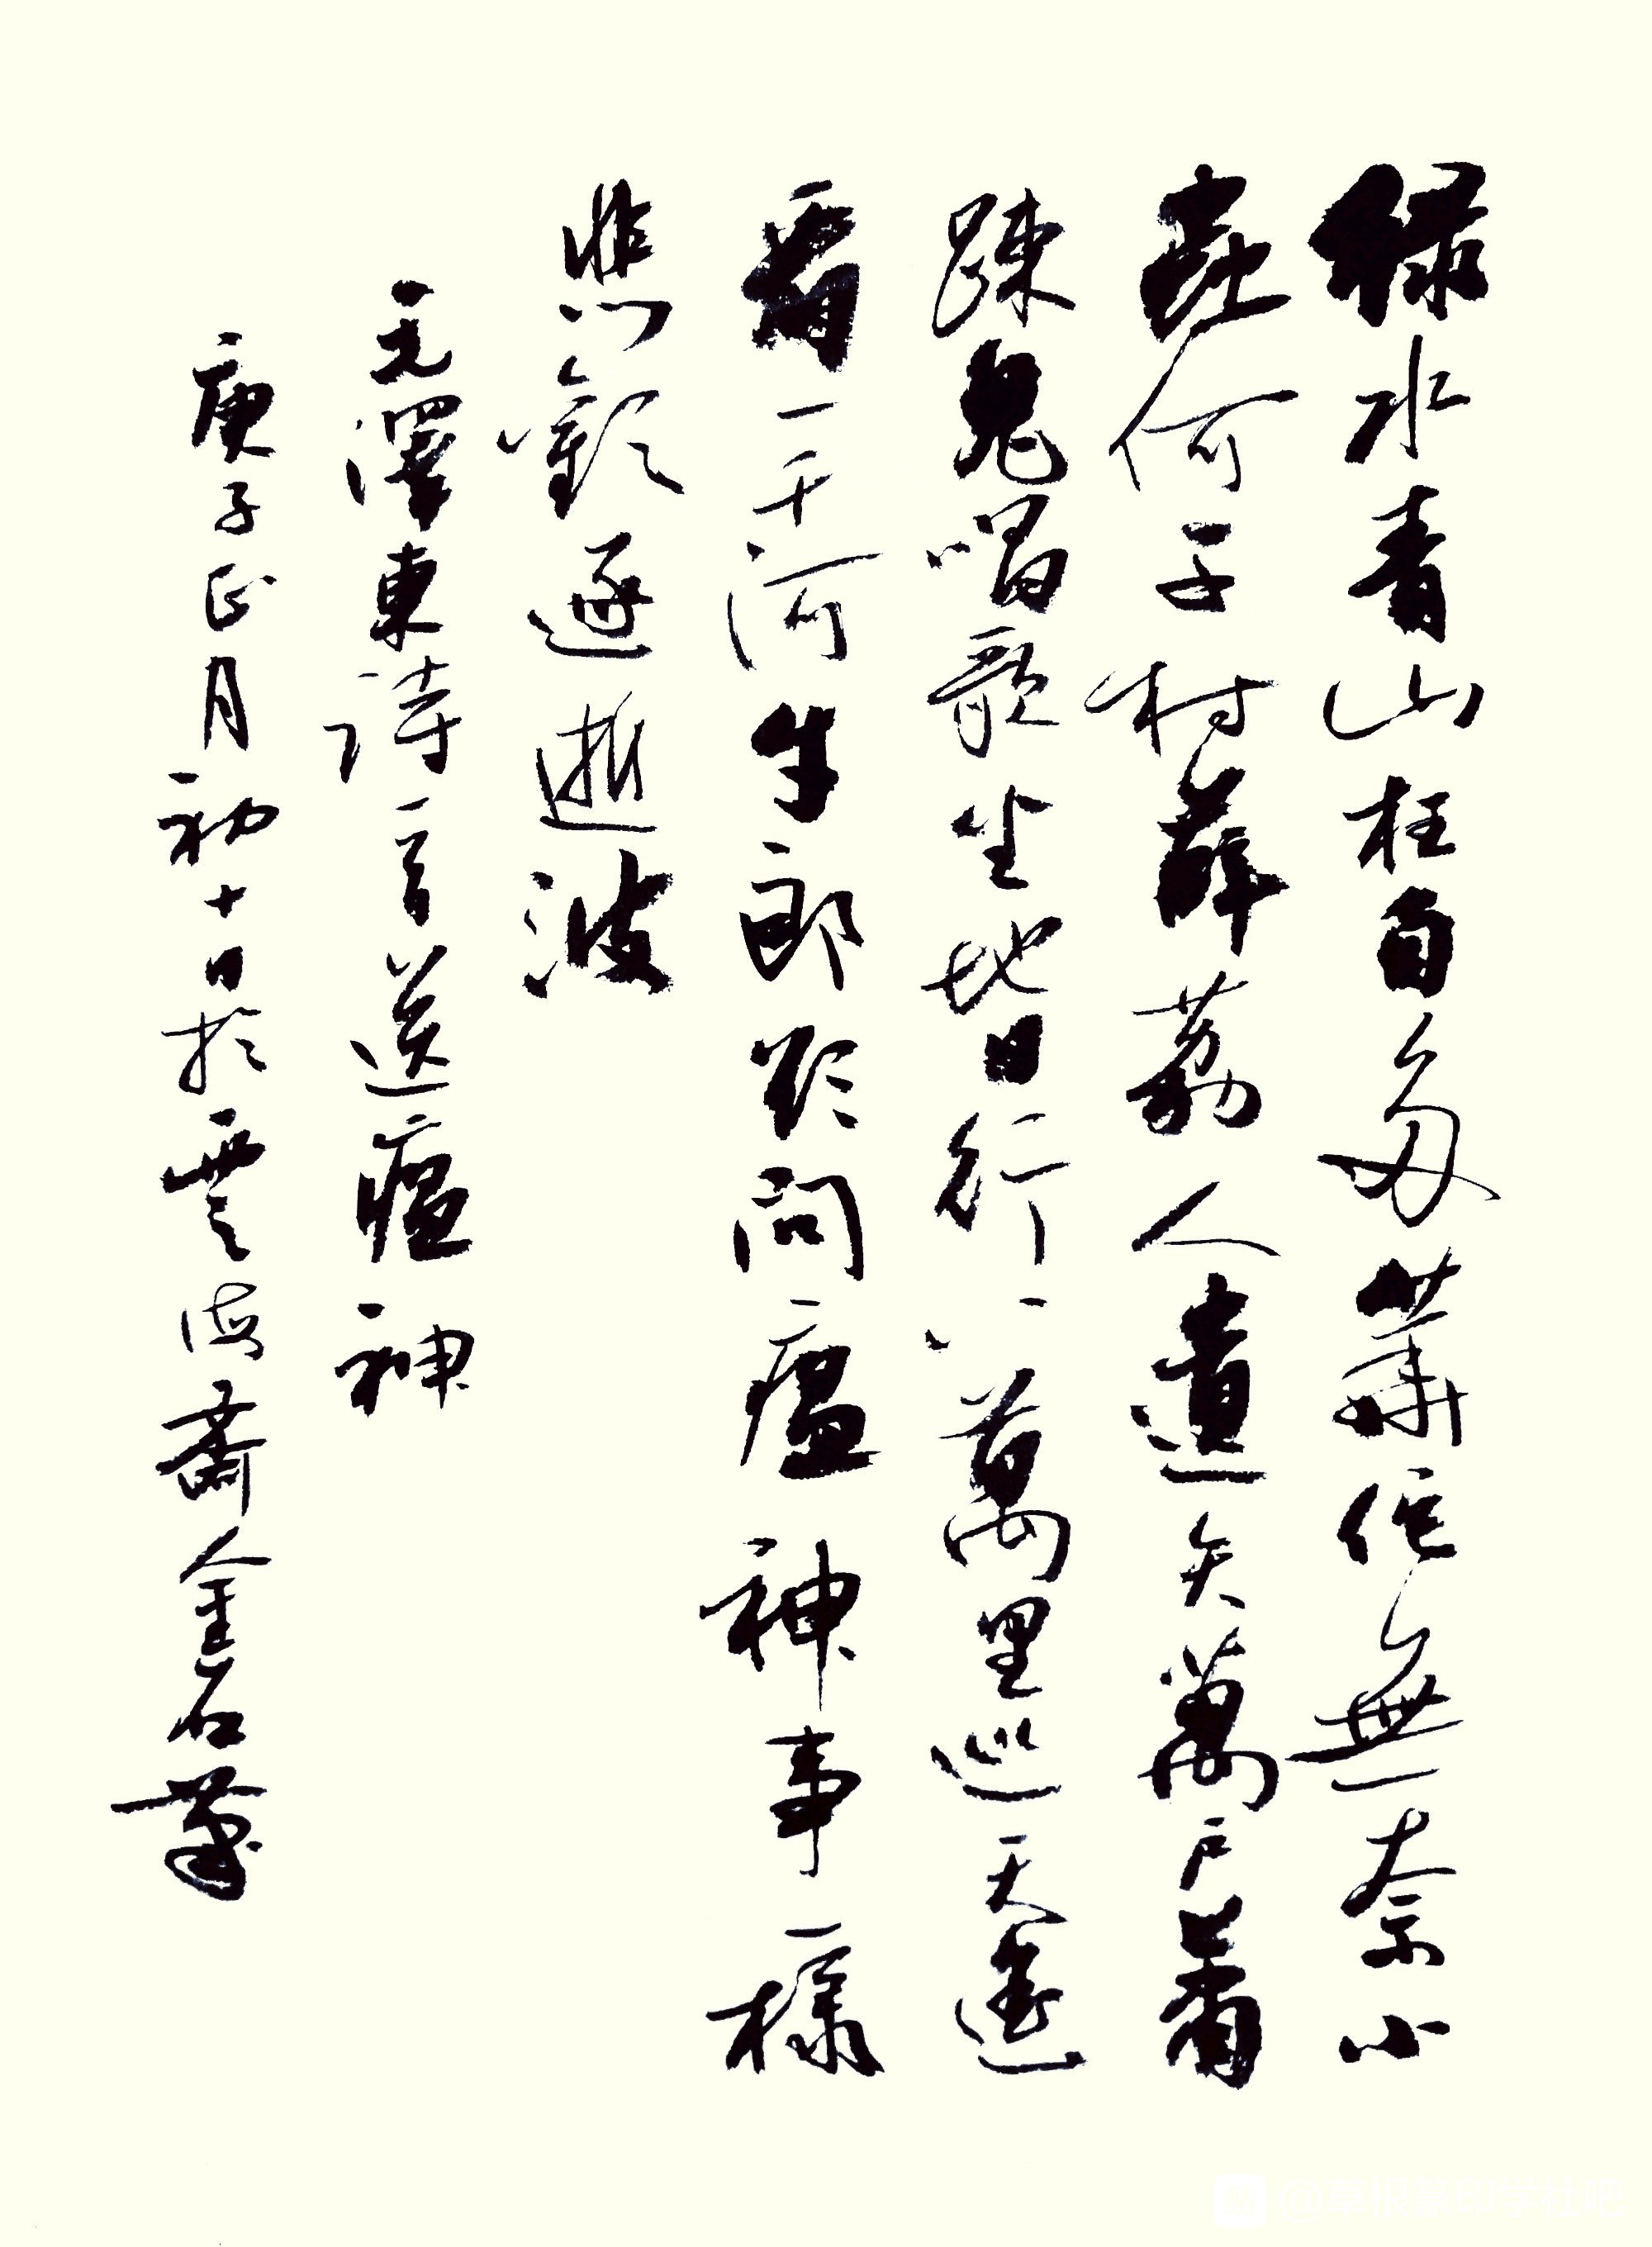 緑水青山枉自多華佗無奈小
虫何千村薜荔人遺矢萬户蕭
踈鬼唱歌坐地日行八萬里巡天遥
看一千河牛郎欲問瘟神事一樣
悲歡逐逝波
毛澤東詩一首送瘟神
庚子正月初十日於雲海齋金石筆